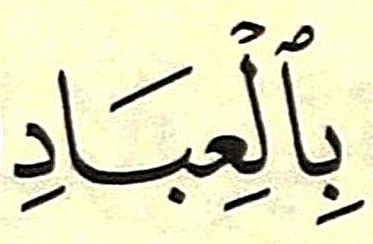 بِٱلْعِبَادِ